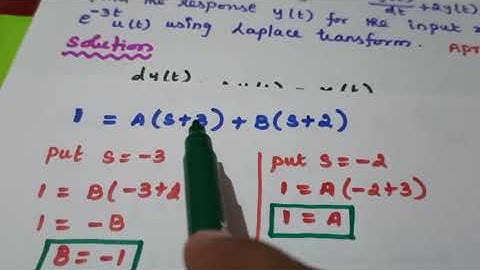 the response y(t) for the input x
dt + 2y(t)
e^-3t u(t) using Laplace transform. Apr
Solution
dy(t)
1 = A(s+3) + B(s+2)
put s = -3
1 = B(-3+2
1 = -B
B = -1
put s = -2
1 = A(-2+3)
1 = A